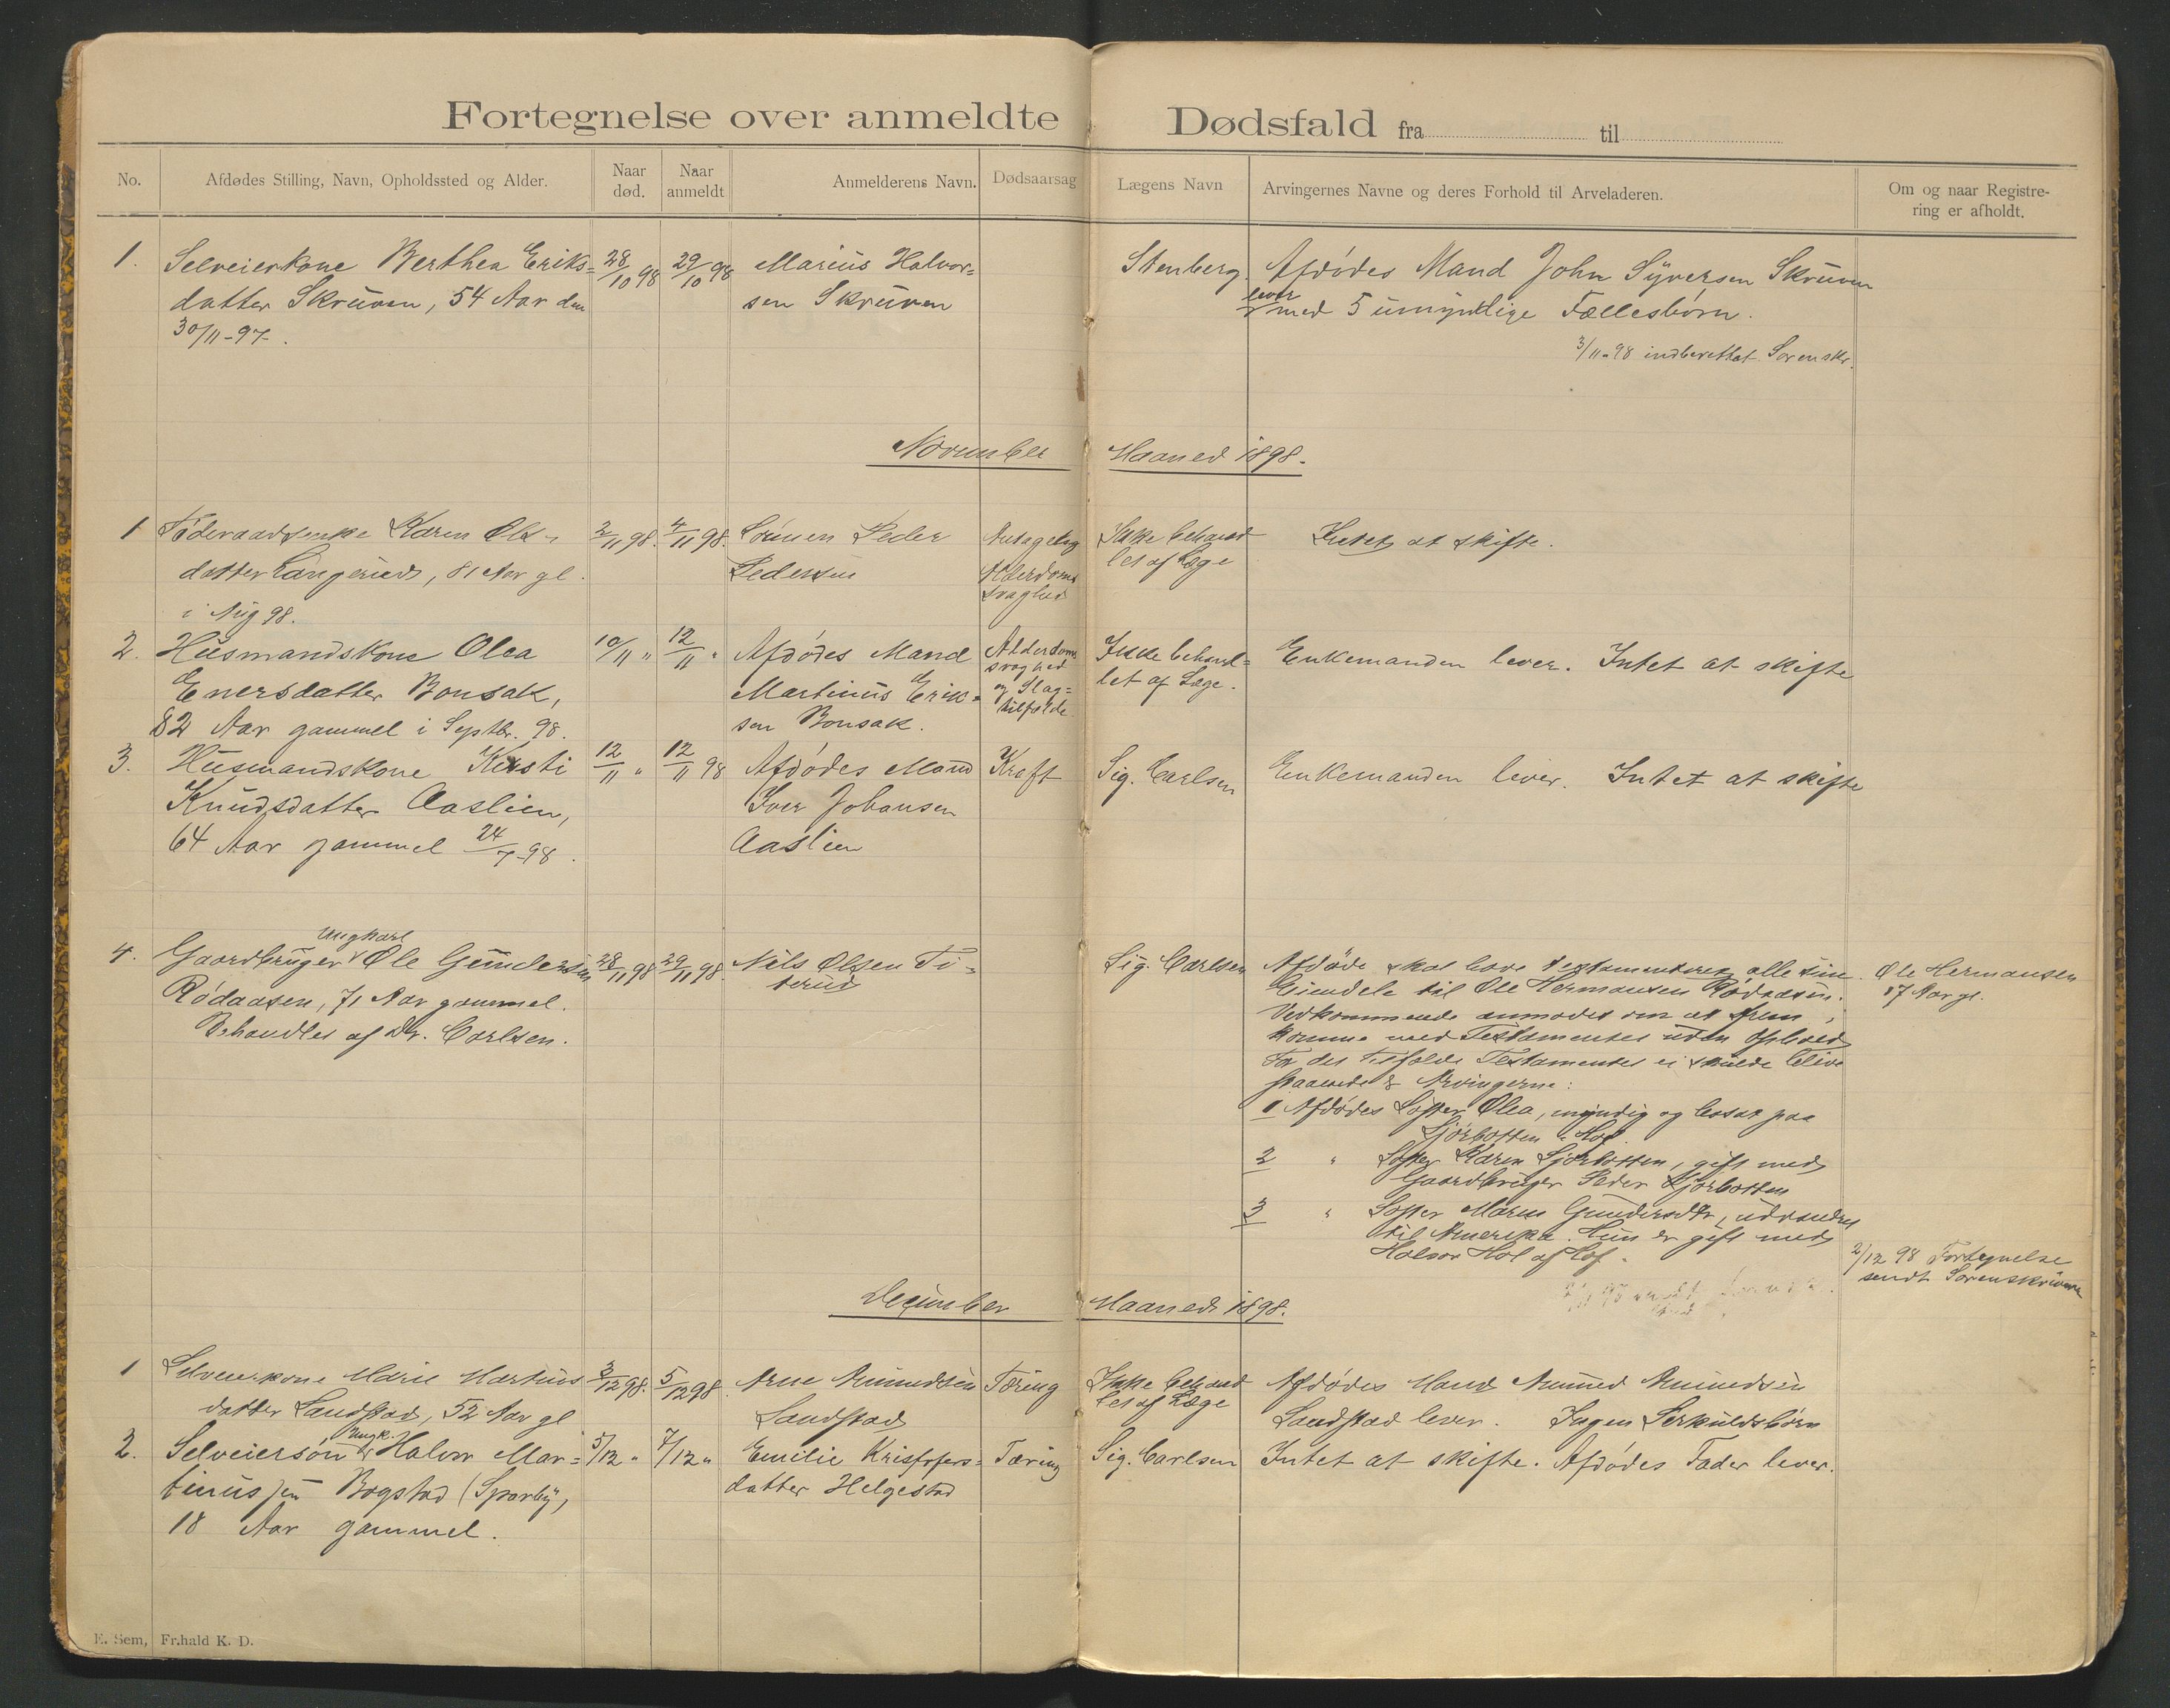 Fortegnelse over anmeldte Dødsfald fra til
No. Afdødes Stilling, Navn, Opholdssted og Alder. Naar død. Naar anmeldt Anmelderens Navn. Dødsaarsag Lægens Navn Arvingernes Navne og deres Forhold til Arveladeren. Om og naar Registrering er afholdt.
1. Selveierkone Berthea Eriks=
datter Skruven, 54 Aar den
30/11-97.
28/10 98
29/10 98
Marius Halvor=
sen Skruven
Stenberg.
Afdødes Mand John Syversen Skruven
lever med 5 umyndige Fællesbørn.
3/11-98 indberettet Sorenskr.
November Maaned 1898.
1 Føderaadsenke Karen Ols-
datter Langerud, 81 Aar gl.
i Aug 98.
2/11 98.
4/11 98.
Lørmen Peder
Pedersen
Antagelig
Alderdoms
svaghed
Ikke behand
let af Læge
Intet at skifte.
2. Husmandskone Olea
Enersdatter Bonsak,
82 Aar gammel i Septbr. 98.
10/11 "
12/11 "
Afdødes Mand
Martinus Erik=
sen Bonsak.
Alderdoms
svaghed
og Slag=
tilfælde
Ikke behand=
let af Læge.
Enkemanden lever. Intet at skifte
3. Husmandskone Kersti
Knudsdatter Aaslien,
64 Aar gammel 24/7-98.
12/11 "
12/11 98
Afdødes Mand
Iver Johansen
Aaslien
Kræft
Sig. Carlsen
Enkemanden lever. Intet at skifte
4. Gaardbruger Ungkarl Ole Gundersen
Rødaasen, 71 Aar gammel.
Behandlet af Dr. Carlsen.
28/11 98
29/11 98.
Nils Olsen Ti=
terud
Sig. Carlsen
Afdøde skal have testamenteret alle sine
Eiendele til Ole Hermansen Rødaasen.
Vedkommende anmodet om at frem
komme med Testamentet uden Ophold
For det Tilfælde Testamentet ei skulde blive
staaende er Arvingerne:
1 Afdødes Søster Olea, myndig og bosat paa
Sjørbotten i Hof.
2 " Søster Karen Sjørbotten, gift med
Gaardbruger Peder Sjørbotten
3 " Søster Maren Gundersdtr, udvandret
til Amerika. Hun er gift med
Halvor Hol af Hof.
Ole Hermansen
17 Aar gl.
2/12 98 Fortegnelse
sendt Sorenskriveren
December Maaned 1898.
1 Selveierkone Marie Martinus
datter Sandstad, 52 Aar gl
3/12 98.
5/12 98.
Arne Amundsen
Sandstad
Tæring
Ikke behand
let af Læge
Afdødes Mand Amund Amundsen
Sandstad lever. Ingen Særkuldsbørn
2. Selveiersøn Ungk. Halvor Mar=
tinussen Bogstad (Sparby,
18 Aar gammel.
5/12 "
7/12 "
Emilie Kristofers=
datter Helgestad
Tæring
Sig. Carlsen
Intet at skifte. Afdødes Fader lever.
E. Sem, Fr.hald K. D.